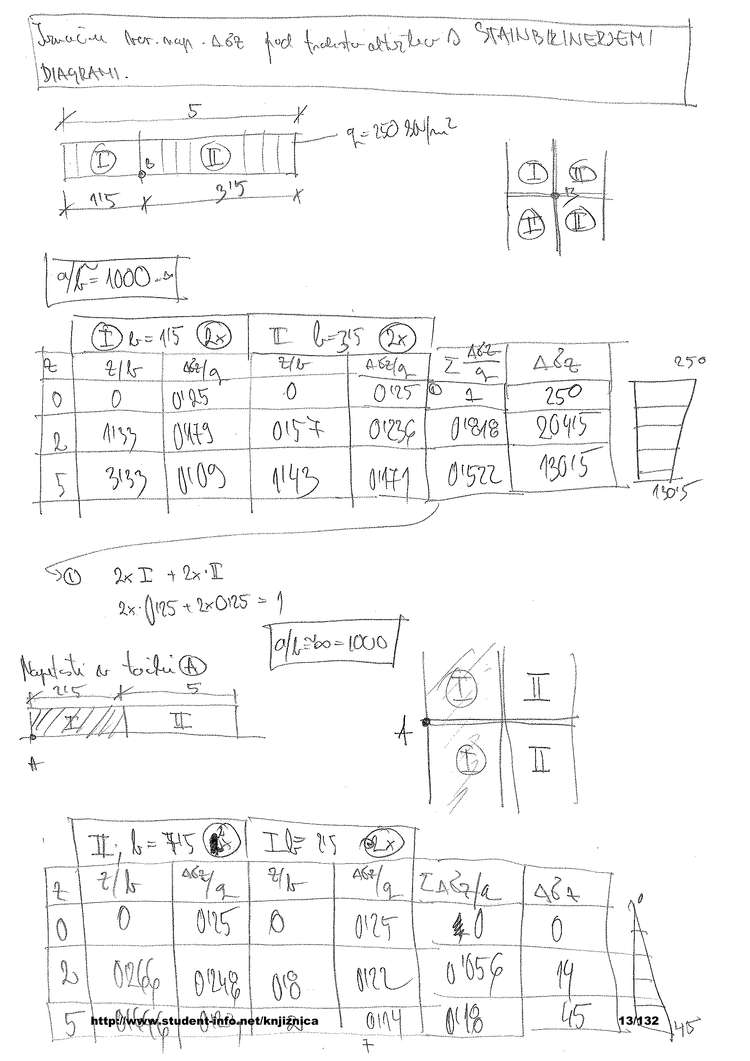 pod S STAINBRENERJEMI
DIAGRAMI.
5
q=250 kN/m²
I B II
1'5 3'5
I II
B
II II
a/b = 1000
I b=1'5 2x II b=3'5 2x
z z/b Δσz/q z/b Δσz/q Σ Δσz/q Δσz
0 0 0'25 0 0'25 ① 1 250
2 1'33 0'179 0'57 0'236 0'818 204'5
5 3'33 0'09 1'43 0'171 0'522 130'5
250
130'5
① 2x I + 2x·II
2x·0'125 + 2x0'125 = 1
a/b=∞=1000
A
2'5 5
I II
A
I II
A
I II
II, b=7'5 2x I b=2'5 2x
z z/b Δσz/q z/b Δσz/q ΣΔσz/q Δσz
0 0 0'25 0 0'25 0 0
2 0'266 0'248 0'8 0'22 0'056 14
5 0'14 0'18 45
0
45
http://www.student-info.net/knjiznica
13/132